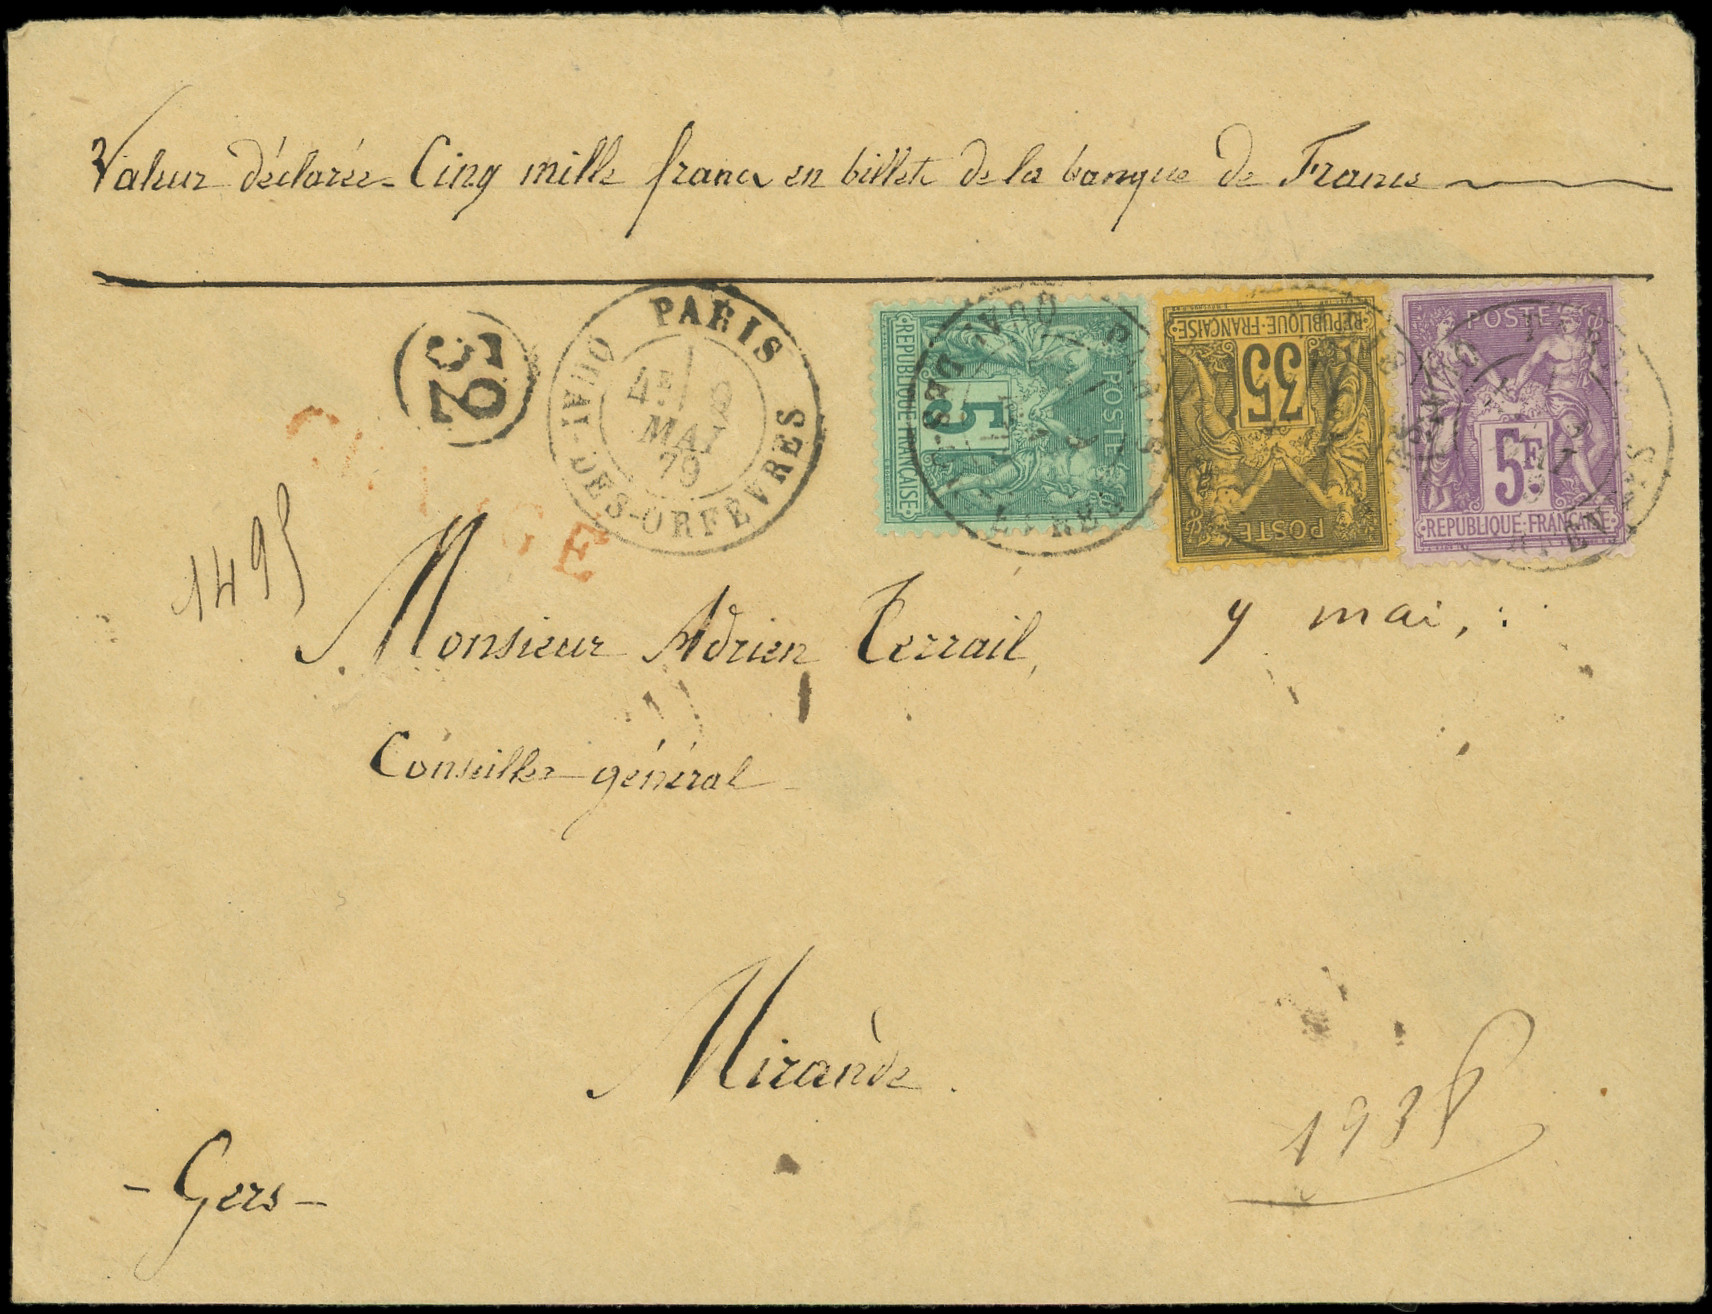 Valeur déclarée Cinq mille francs en billets de la banque de France
32
PARIS
QUAI-DES-ORFÈVRES
4E 9
MAI
79
5
POSTE
REPUBLIQUE FRANÇAISE
35
POSTE
REPUBLIQUE-FRANÇAISE
POSTE
5F
REPUBLIQUE FRANÇAISE
CHARGE
1495
9 mai,
Monsieur Adrien Terrail,
Conseiller général
Mirande.
- Gers -